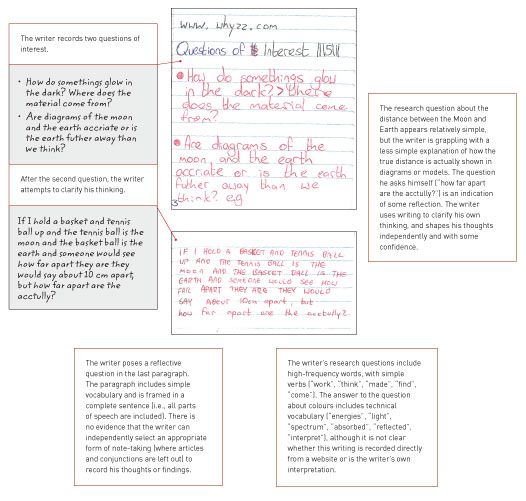 The writer records two questions of
interest.
• How do somethings glow
in the dark? Where does the
material come from?
• Are diagrams of the moon
and the earth accriate or is
the earth futher away than
we think?
After the second question, the writer
attempts to clarify his thinking.
If I hold a basket and tennis
ball up and the tennis ball is the
moon and the basket ball is the
earth and someone would see
how far apart they are they
would say about 10 cm apart,
but how far apart are the
acctully?
www.whyzz.com
Questions of Interest
How do somethings glow
in the dark?> Where
does the material come
from?
Are diagrams of the
moon and the earth
accrate or is the earth
futher away than we
think? e.g
IF I HOLD A BASKET AND TENNIS BALL
UP AND THE TENNIS BALL IS THE
MOON AND THE BASKET BALL IS THE
EARTH AND SOMEONE WOULD SEE HOW
FAR APART THEY ARE THEY WOULD
SAY ABOUT 10cm apart, but
how far apart are the acctully?
The research question about the
distance between the Moon and
Earth appears relatively simple,
but the writer is grappling with a
less simple explanation of how the
true distance is actually shown in
diagrams or models. The question
he asks himself ("how far apart
are the acctully?") is an indication
of some reflection. The writer
uses writing to clarify his own
thinking, and shapes his thoughts
independently and with some
confidence.
The writer poses a reflective
question in the last paragraph.
The paragraph includes simple
vocabulary and is framed in a
complete sentence (i.e., all parts
of speech are included). There is
no evidence that the writer can
independently select an appropriate
form of note-taking (where articles
and conjunctions are left out) to
record his thoughts or findings.
The writer's research questions include
high-frequency words, with simple
verbs ("work", "think", "made", "find",
"come"). The answer to the question
about colours includes technical
vocabulary ("energies", "light",
"spectrum", "absorbed", "reflected",
"interpret"), although it is not clear
whether this writing is recorded directly
from a website or is the writer's own
interpretation.